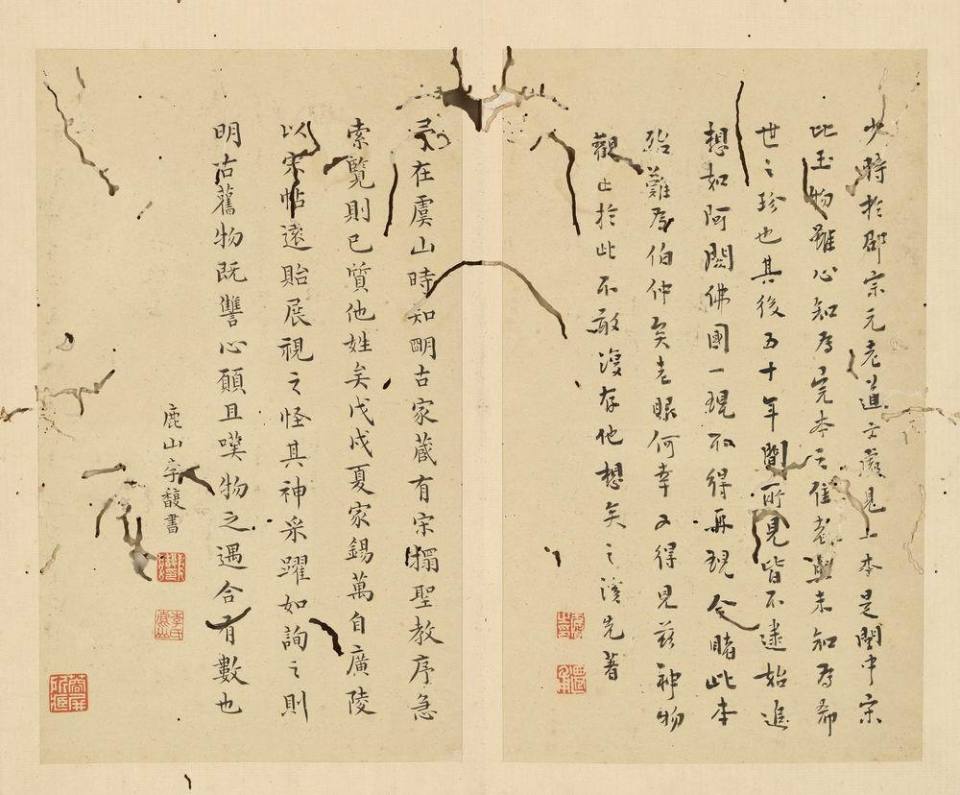 少時於邵宗元老道士處見上本是關中宗
此玉物雖心知為完本之佳者與未知為希
世之珍也其後五十年間所見皆不逮始追
想如阿閦佛國一現不得再現今睹此本
殆難為伯仲矣老眼何幸又得見茲神物
觀止於此不敢復存他想矣之溪先著
予在虞山時知明古家藏有宋搨聖教序急
索覽則已質他姓矣戊戌夏家錫萬自廣陵
以宋帖遠貽展視之怪其神采躍如詢之則
明古舊物既讐心願且嘆物之遇合有數也
鹿山 馥書